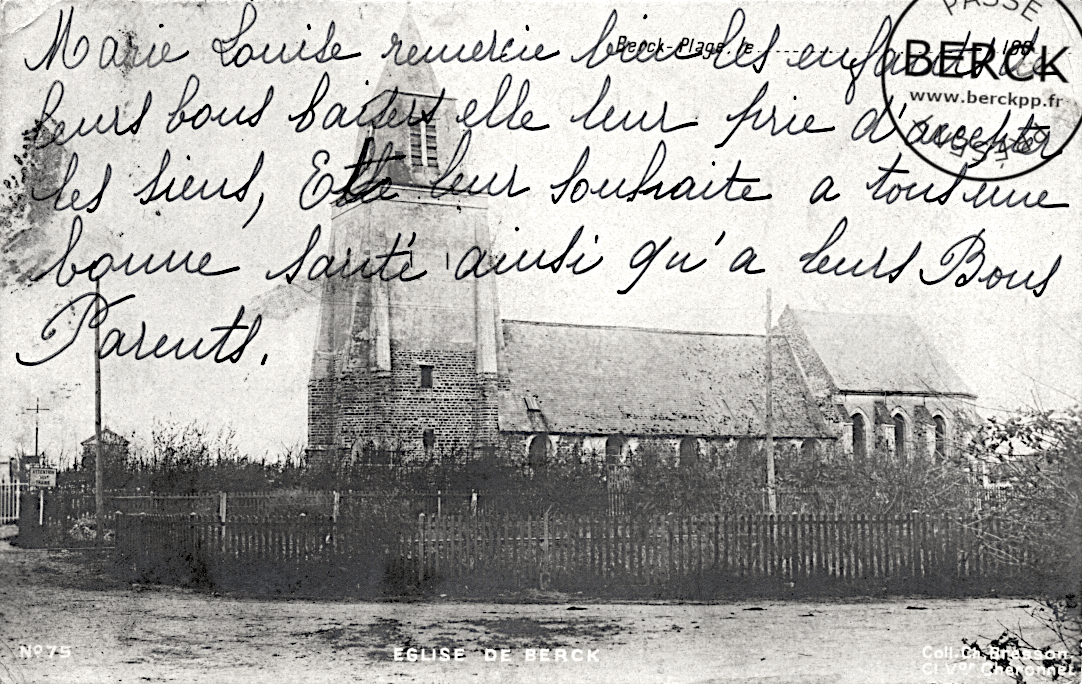 Marie Louise remercie bien les enfants de
leurs bons baisers elle leur prie d'accepter
les siens, Elle leur souhaite a tous une
bonne santé ainsi qu'a leurs Bons
Parents.
Berck-Plage, le
BERCK
www.berckpp.fr
ATTENTION
AUX
TRAINS
Nº75
EGLISE DE BERCK
Coll. Ch. Bresson
Cl. Vor Chéronnet